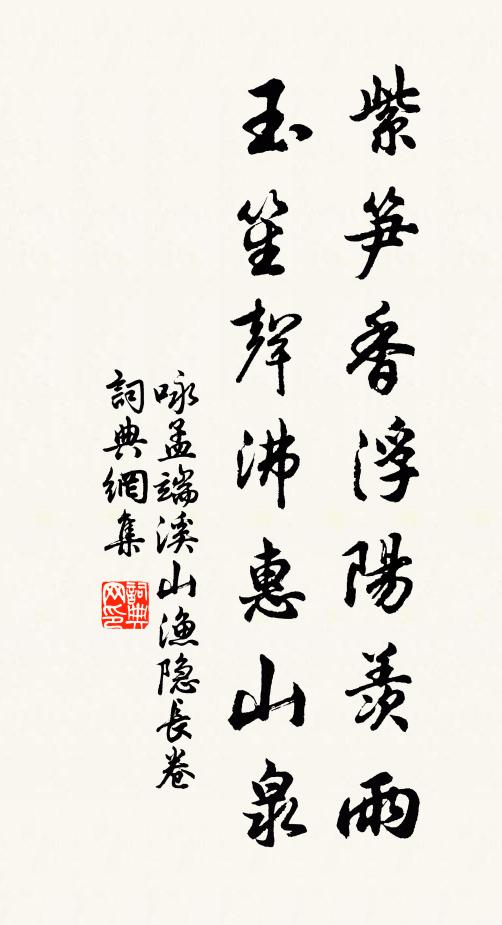 紫笋香浮陽羨雨
玉笙聲沸惠山泉
咏孟端溪山漁隐長卷
詞典網集
詞典
网印